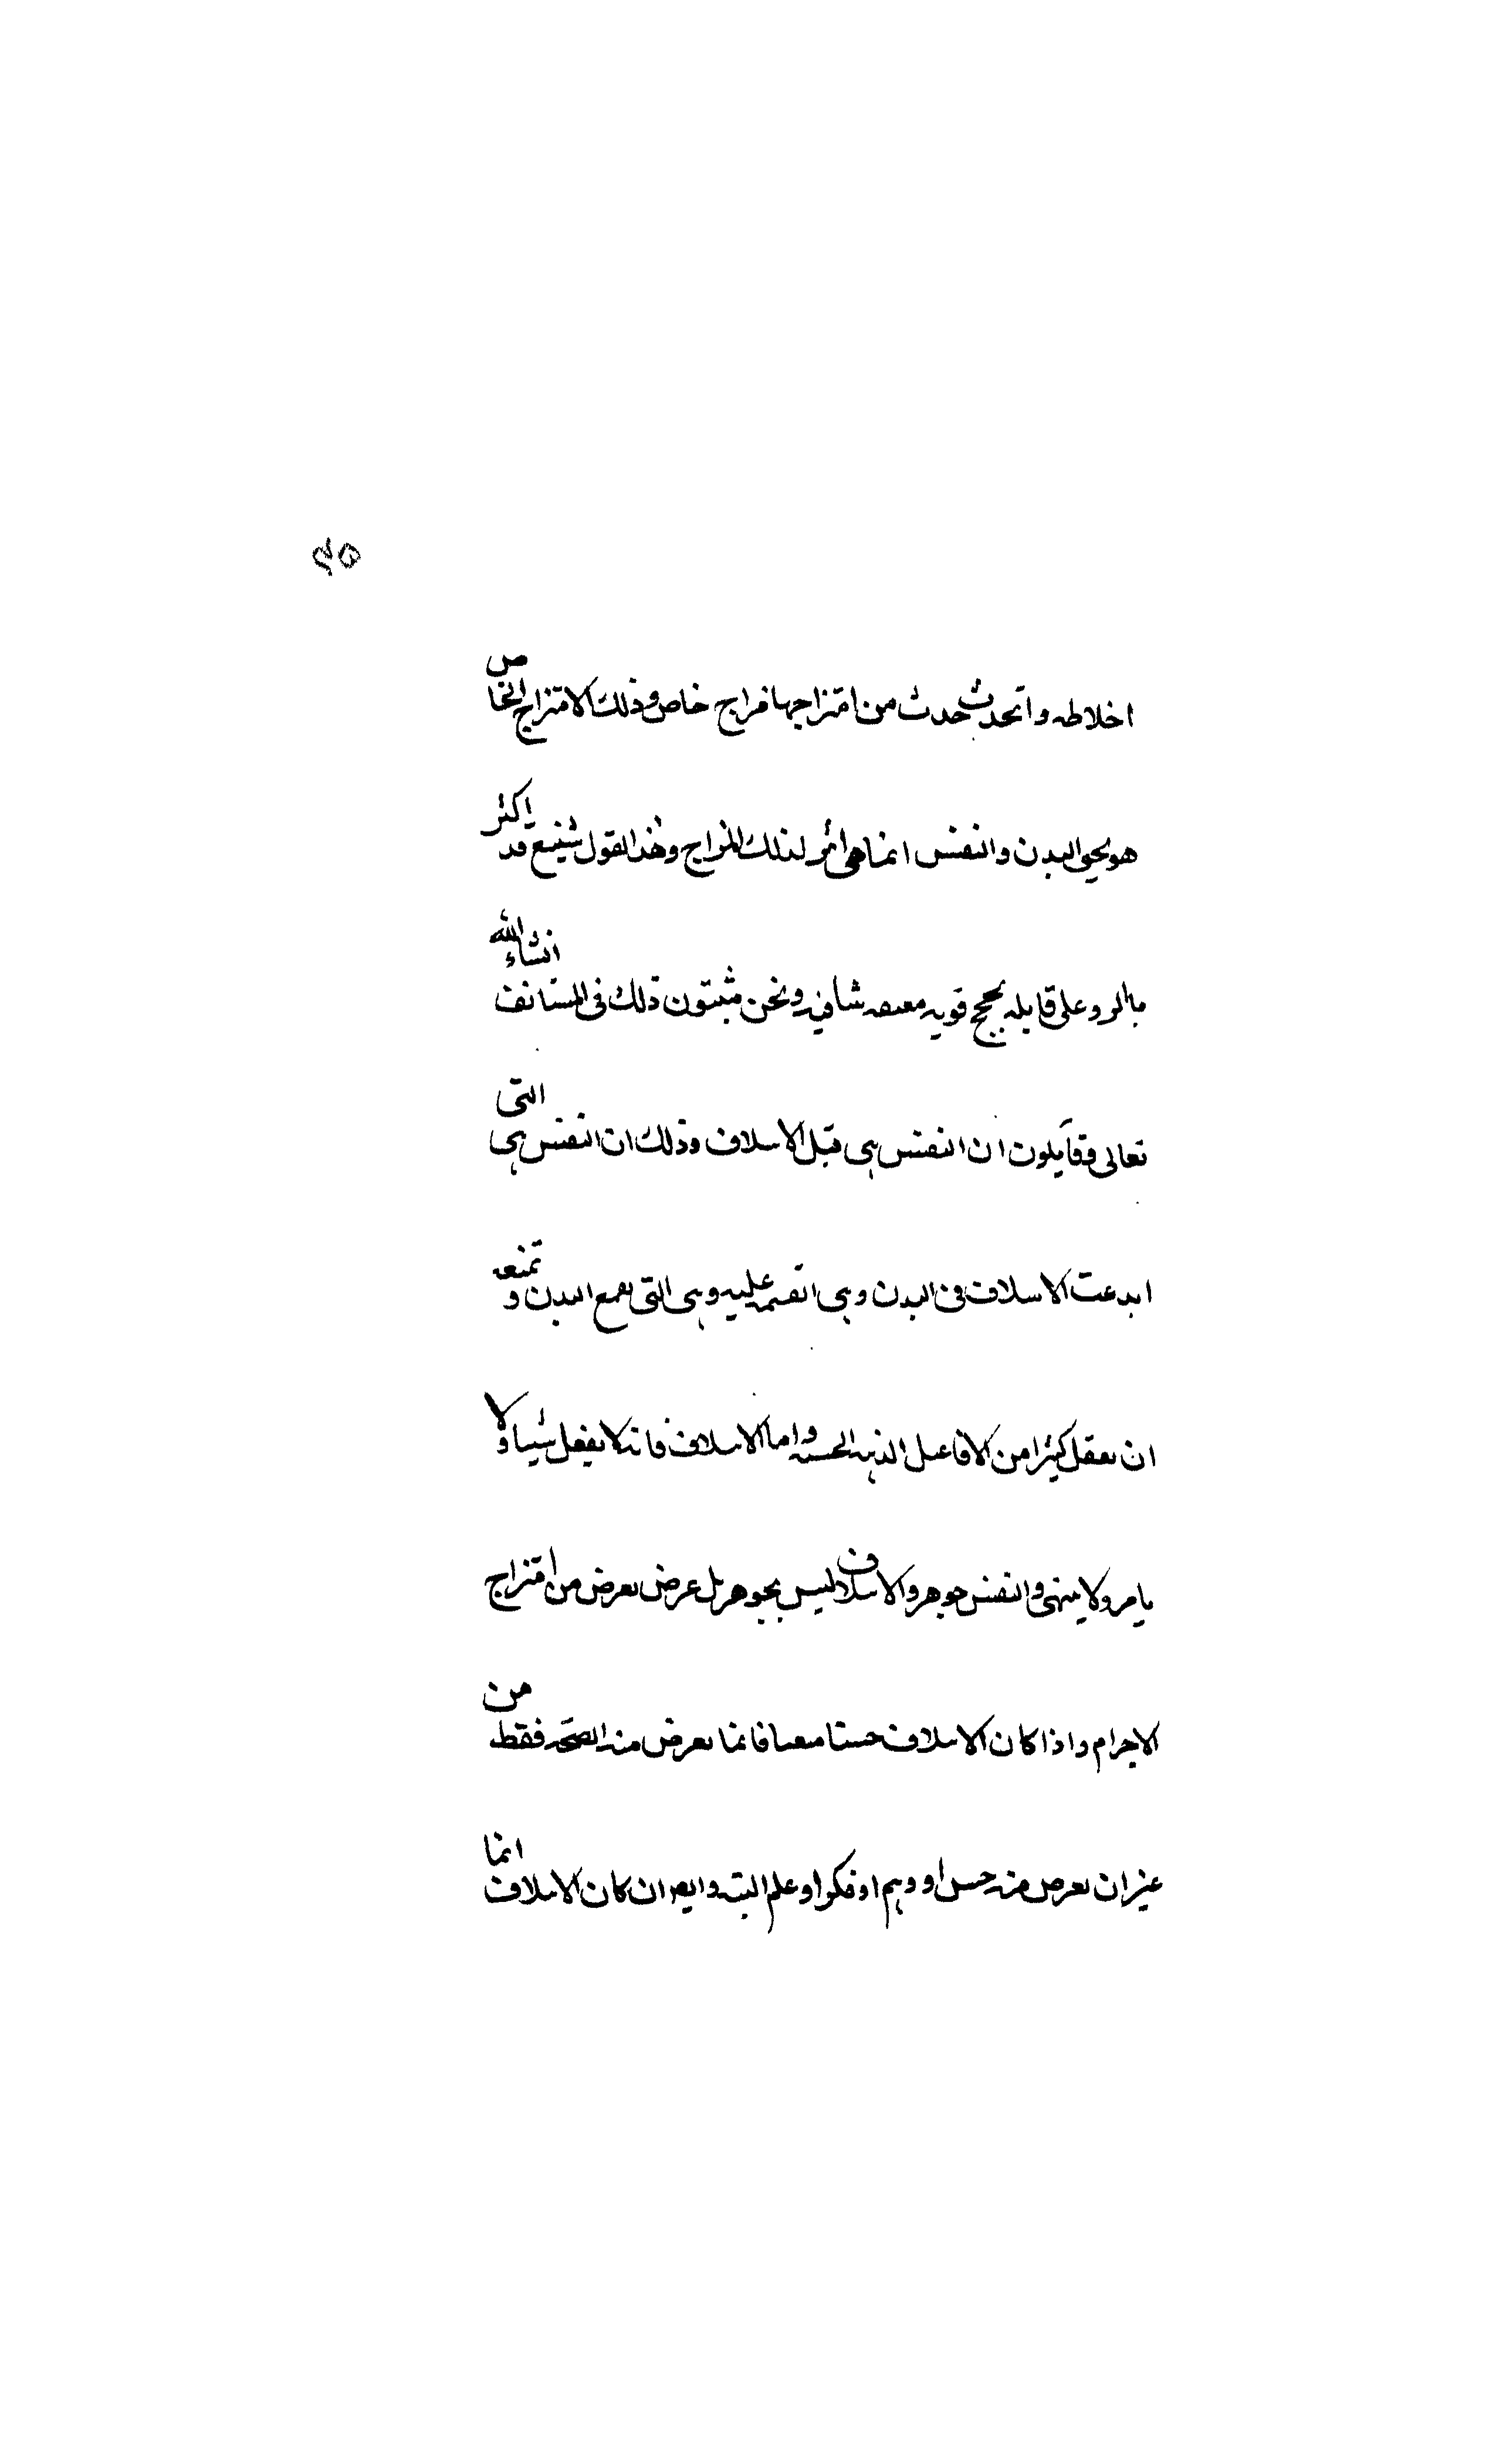 ۴۵
اخلاطه واتحدث حدث من امتزاجها مزاج خاص وذلك الامتزاج الخاص
هو يحيي البدن والنفس انما هى اثر لذلك المزاج وهذا القول شنيع قد اكثر
بالرد على قايله بحجج قويه شافيه ونحن مثبتون ذلك فى المستانف انشاء الله
تعالى فقايلون ان النفس هى قبل الاسلاف وذلك ان النفس هى التى
ابدعت الاسلاف فى البدن وهى القيمه عليه وهى التى تقمع البدن و تمنعه
ان يفعل كثيرا من الافاعيل البدنيه الحسيه واما الاسلاف فانه لا يفعل شيا ولا
يامر ولا ينهى والنفس جوهر والاسلاف ليس بجوهر بل عرض يعرض من امتزاج
الاجرام واذا كان الاسلاف حسنا فانما يعرض منه الصحه فقط من
غير ان يعرض منه حس او وهم او فكر او علم البته وايضا ان كان الاسلاف انما